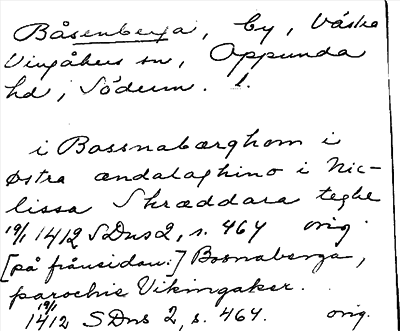 Båsenberga, by, Västra
Vingåkers sn, Oppunda
hd, Söderm. 1.
i Bossnabærghom i
østra ændalaghino i Nic-
lissa Skræddara teghe
19/1 1412 SDns 2, s. 464 orig.
[på frånsidan:] Bosnaberga,
parochie Vikingaker.
19/1 1412 SDns 2, s. 464. orig.